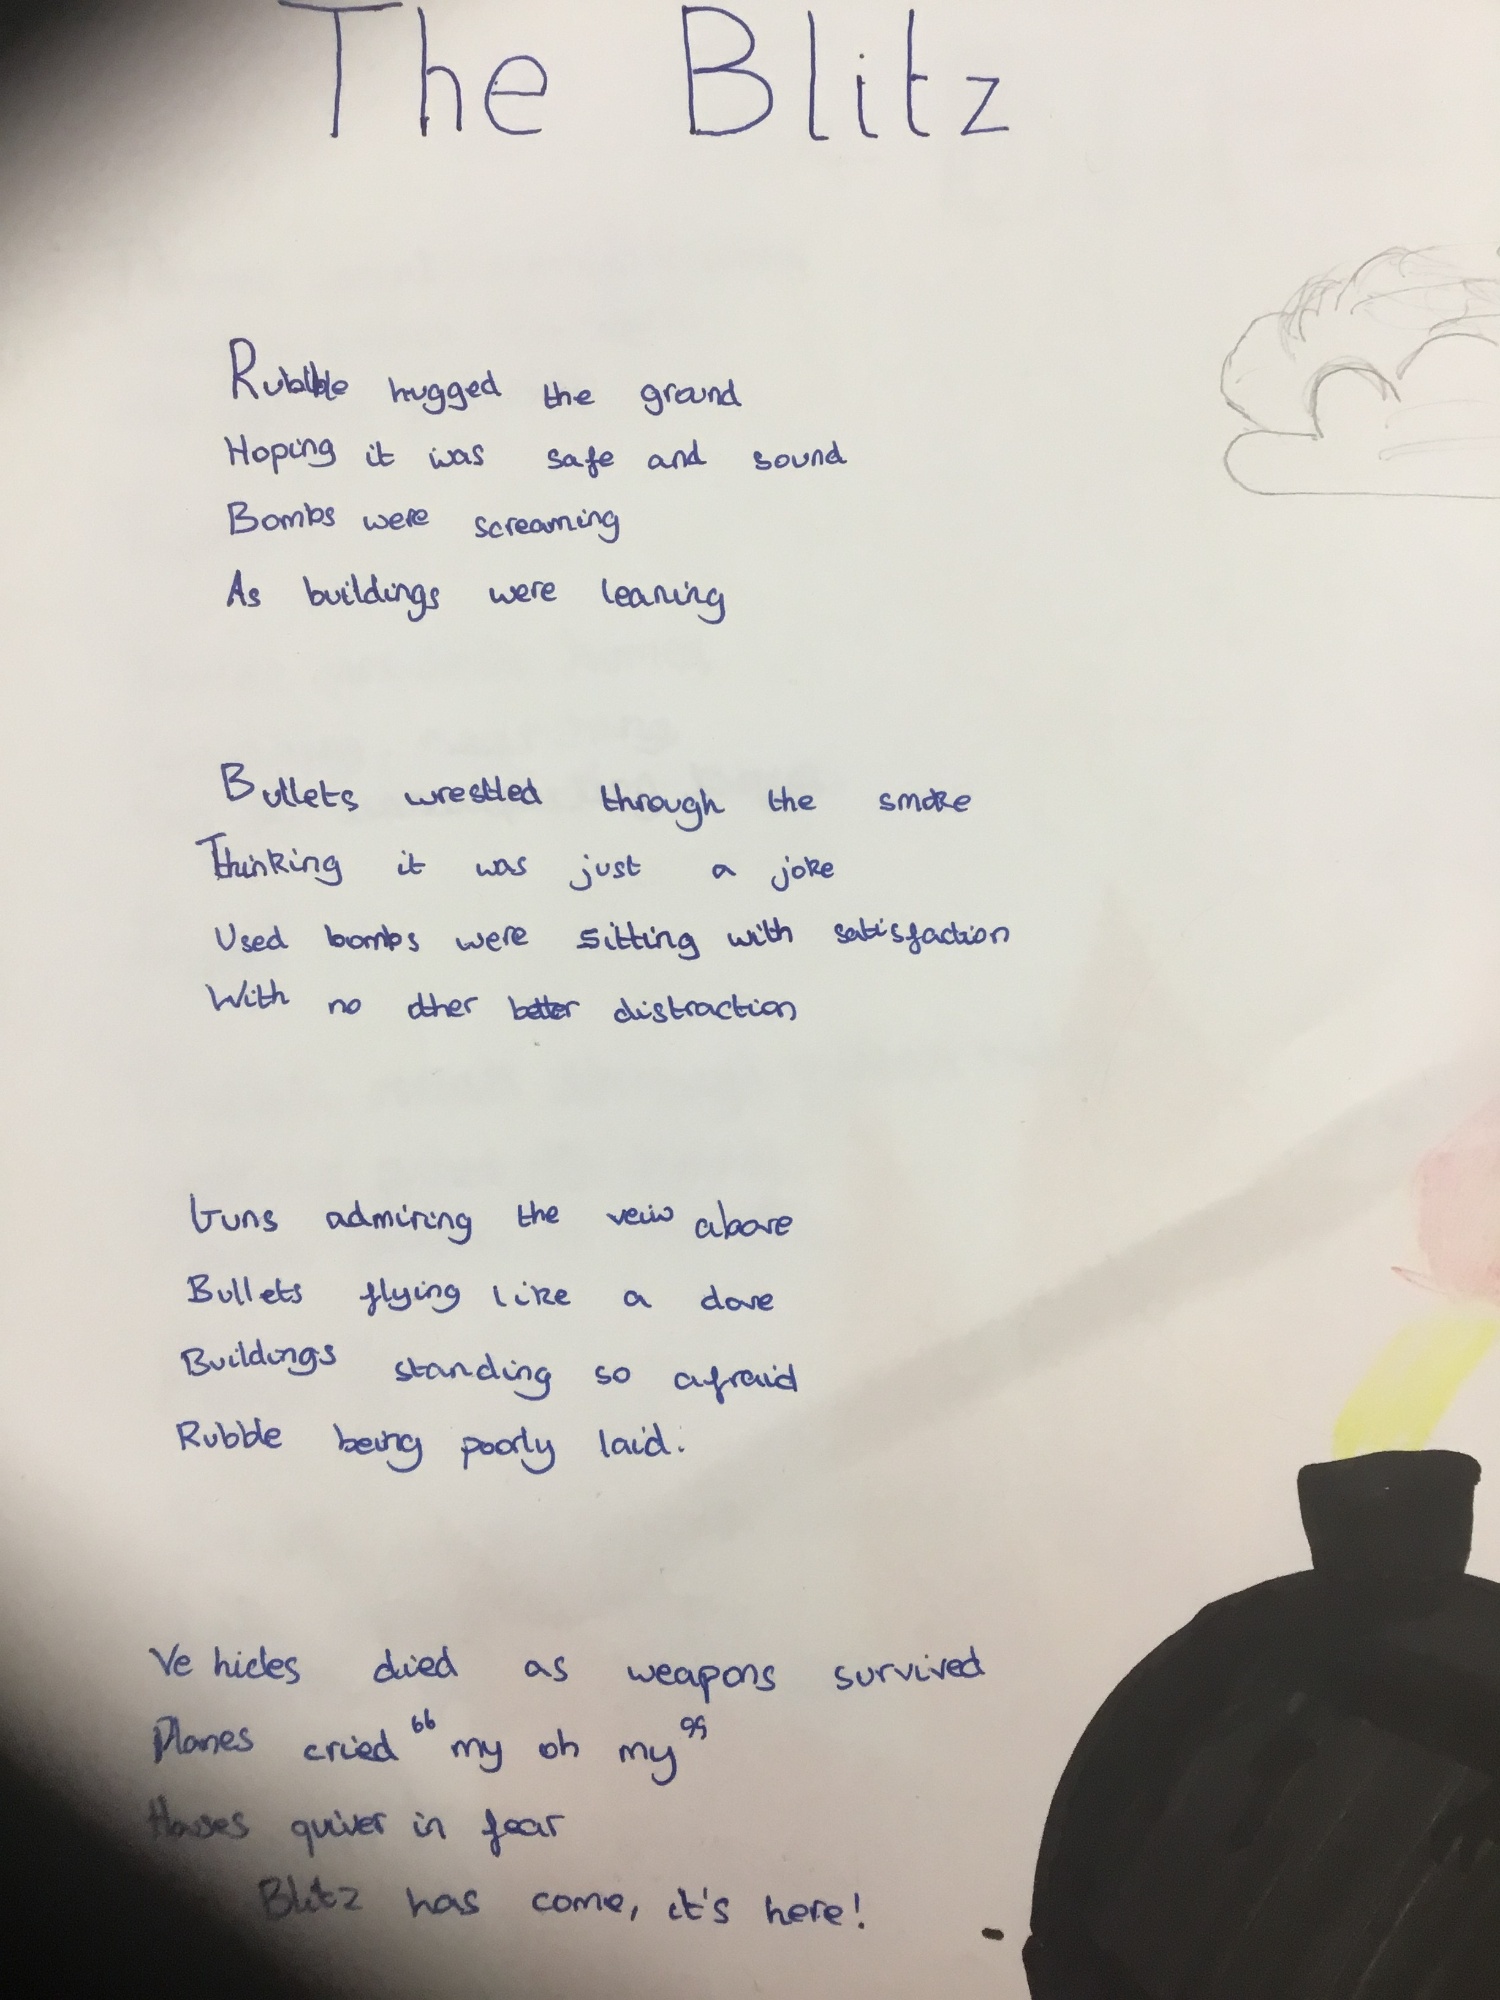 The Blitz
Rubble hugged the ground
Hoping it was safe and sound
Bombs were screaming
As buildings were leaning
Bullets wrestled through the smoke
Thinking it was just a joke
Used bombs were sitting with satisfaction
With no other better distraction
Guns admiring the veiw above
Bullets flying like a dove
Buildings standing so afraid
Rubble being poorly laid.
Vehicles died as weapons survived
Planes cried "my oh my"
Houses quiver in fear
Blitz has come, it's here!